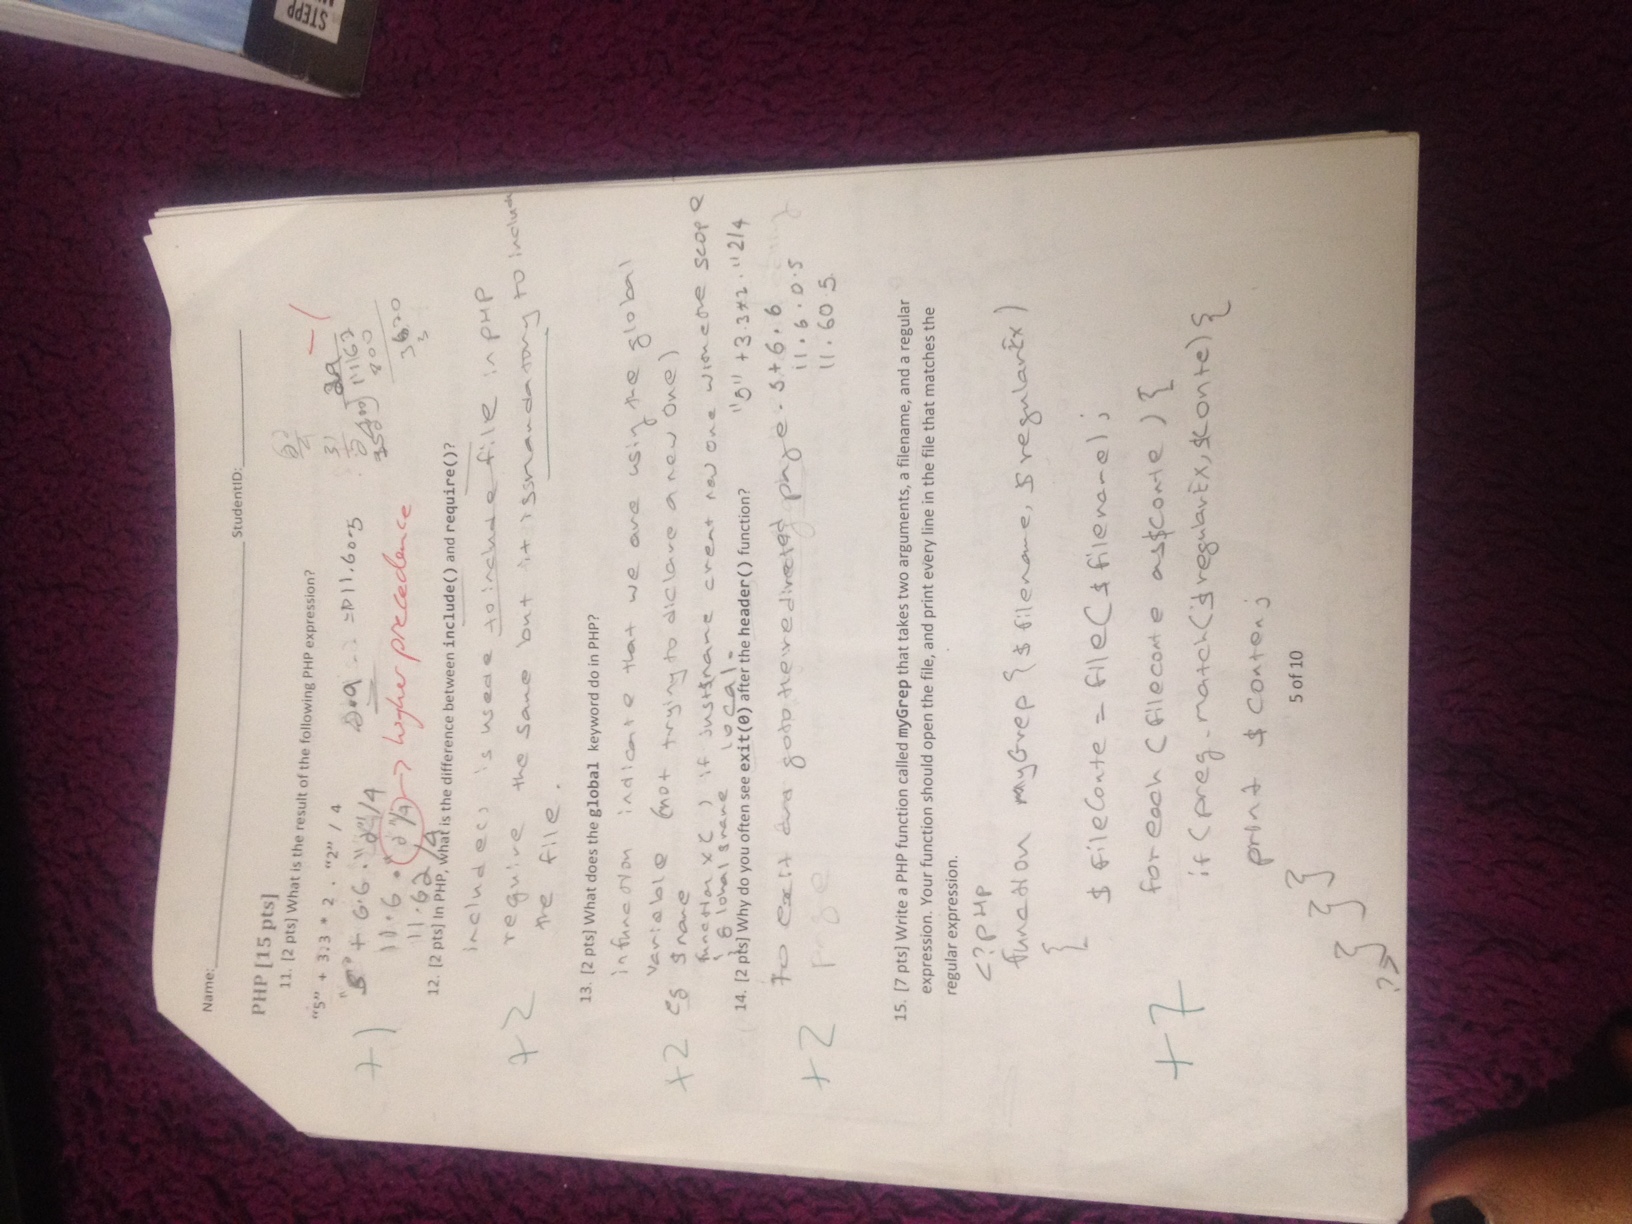 Name:
StudentID:
PHP [15 pts]
11. [2 pts] What is the result of the following PHP expression?
-1
"5" + 3.3 * 2 . "2" / 4
"5" + 6.6 . "2"/4
2.9 => 11.605
+1
11.6 . "2"/4 → higher precedence
11.62 /4
29
400
11162
800
3620
12. [2 pts] In PHP, what is the difference between include() and require()?
include() is usede to include file in PHP
+2
require the same but it is mandatory to include
the file.
13. [2 pts] What does the global keyword do in PHP?
infunction indicate that we are using the global
variable (not trying to diclare a new one)
+2
eg $name
function x( ) if just $name creat new one with scope
{ Global $name local.
14. [2 pts] Why do you often see exit(0) after the header() function?
"5" + 3.3*2 . "2/4
To exit and goto the redirected page.
5+6.6
11.6.0.5
11.60.5
+2
page
15. [7 pts] Write a PHP function called myGrep that takes two arguments, a filename, and a regular
expression. Your function should open the file, and print every line in the file that matches the
regular expression.
<?PHP
function myGrep {$filename, $regularEx)
{
$fileConte = file($filename);
foreach (fileconte as $conte ) {
+7
if (preg_match($regularEx, $Conte) {
print $conten;
5 of 10
}
}
}
?>
STEPP